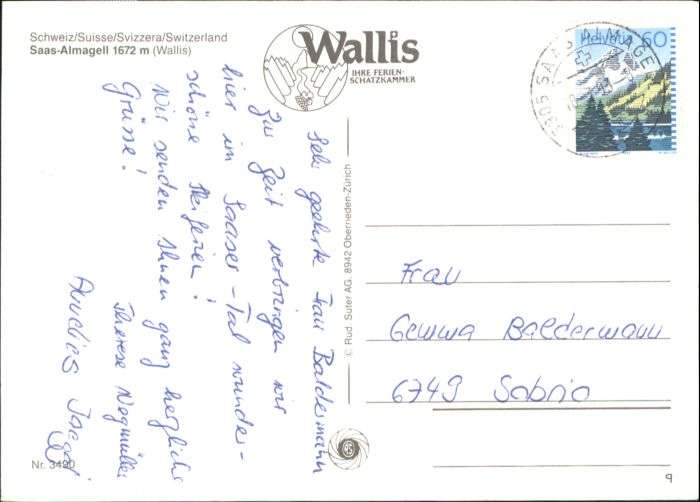 Schweiz/Suisse/Svizzera/Switzerland
Saas-Almagell 1672 m (Wallis)
Wallis
IHRE FERIEN-
SCHATZKAMMER
Helvetia 60
3905 SAAS ALMAGELL
Sehr geehrte Frau Baldermann
Zur Zeit verbringen wir
hier im Saaser-Tal wunder-
schöne Skiferien!
Wir senden Ihnen ganz herzliche
Grüsse!
Therese Wegmüller
© Rud. Suter AG, 8942 Oberrieden-Zürich
Frau
Gemma Baldermann
6749 Sobrio
Nr. 3490
9